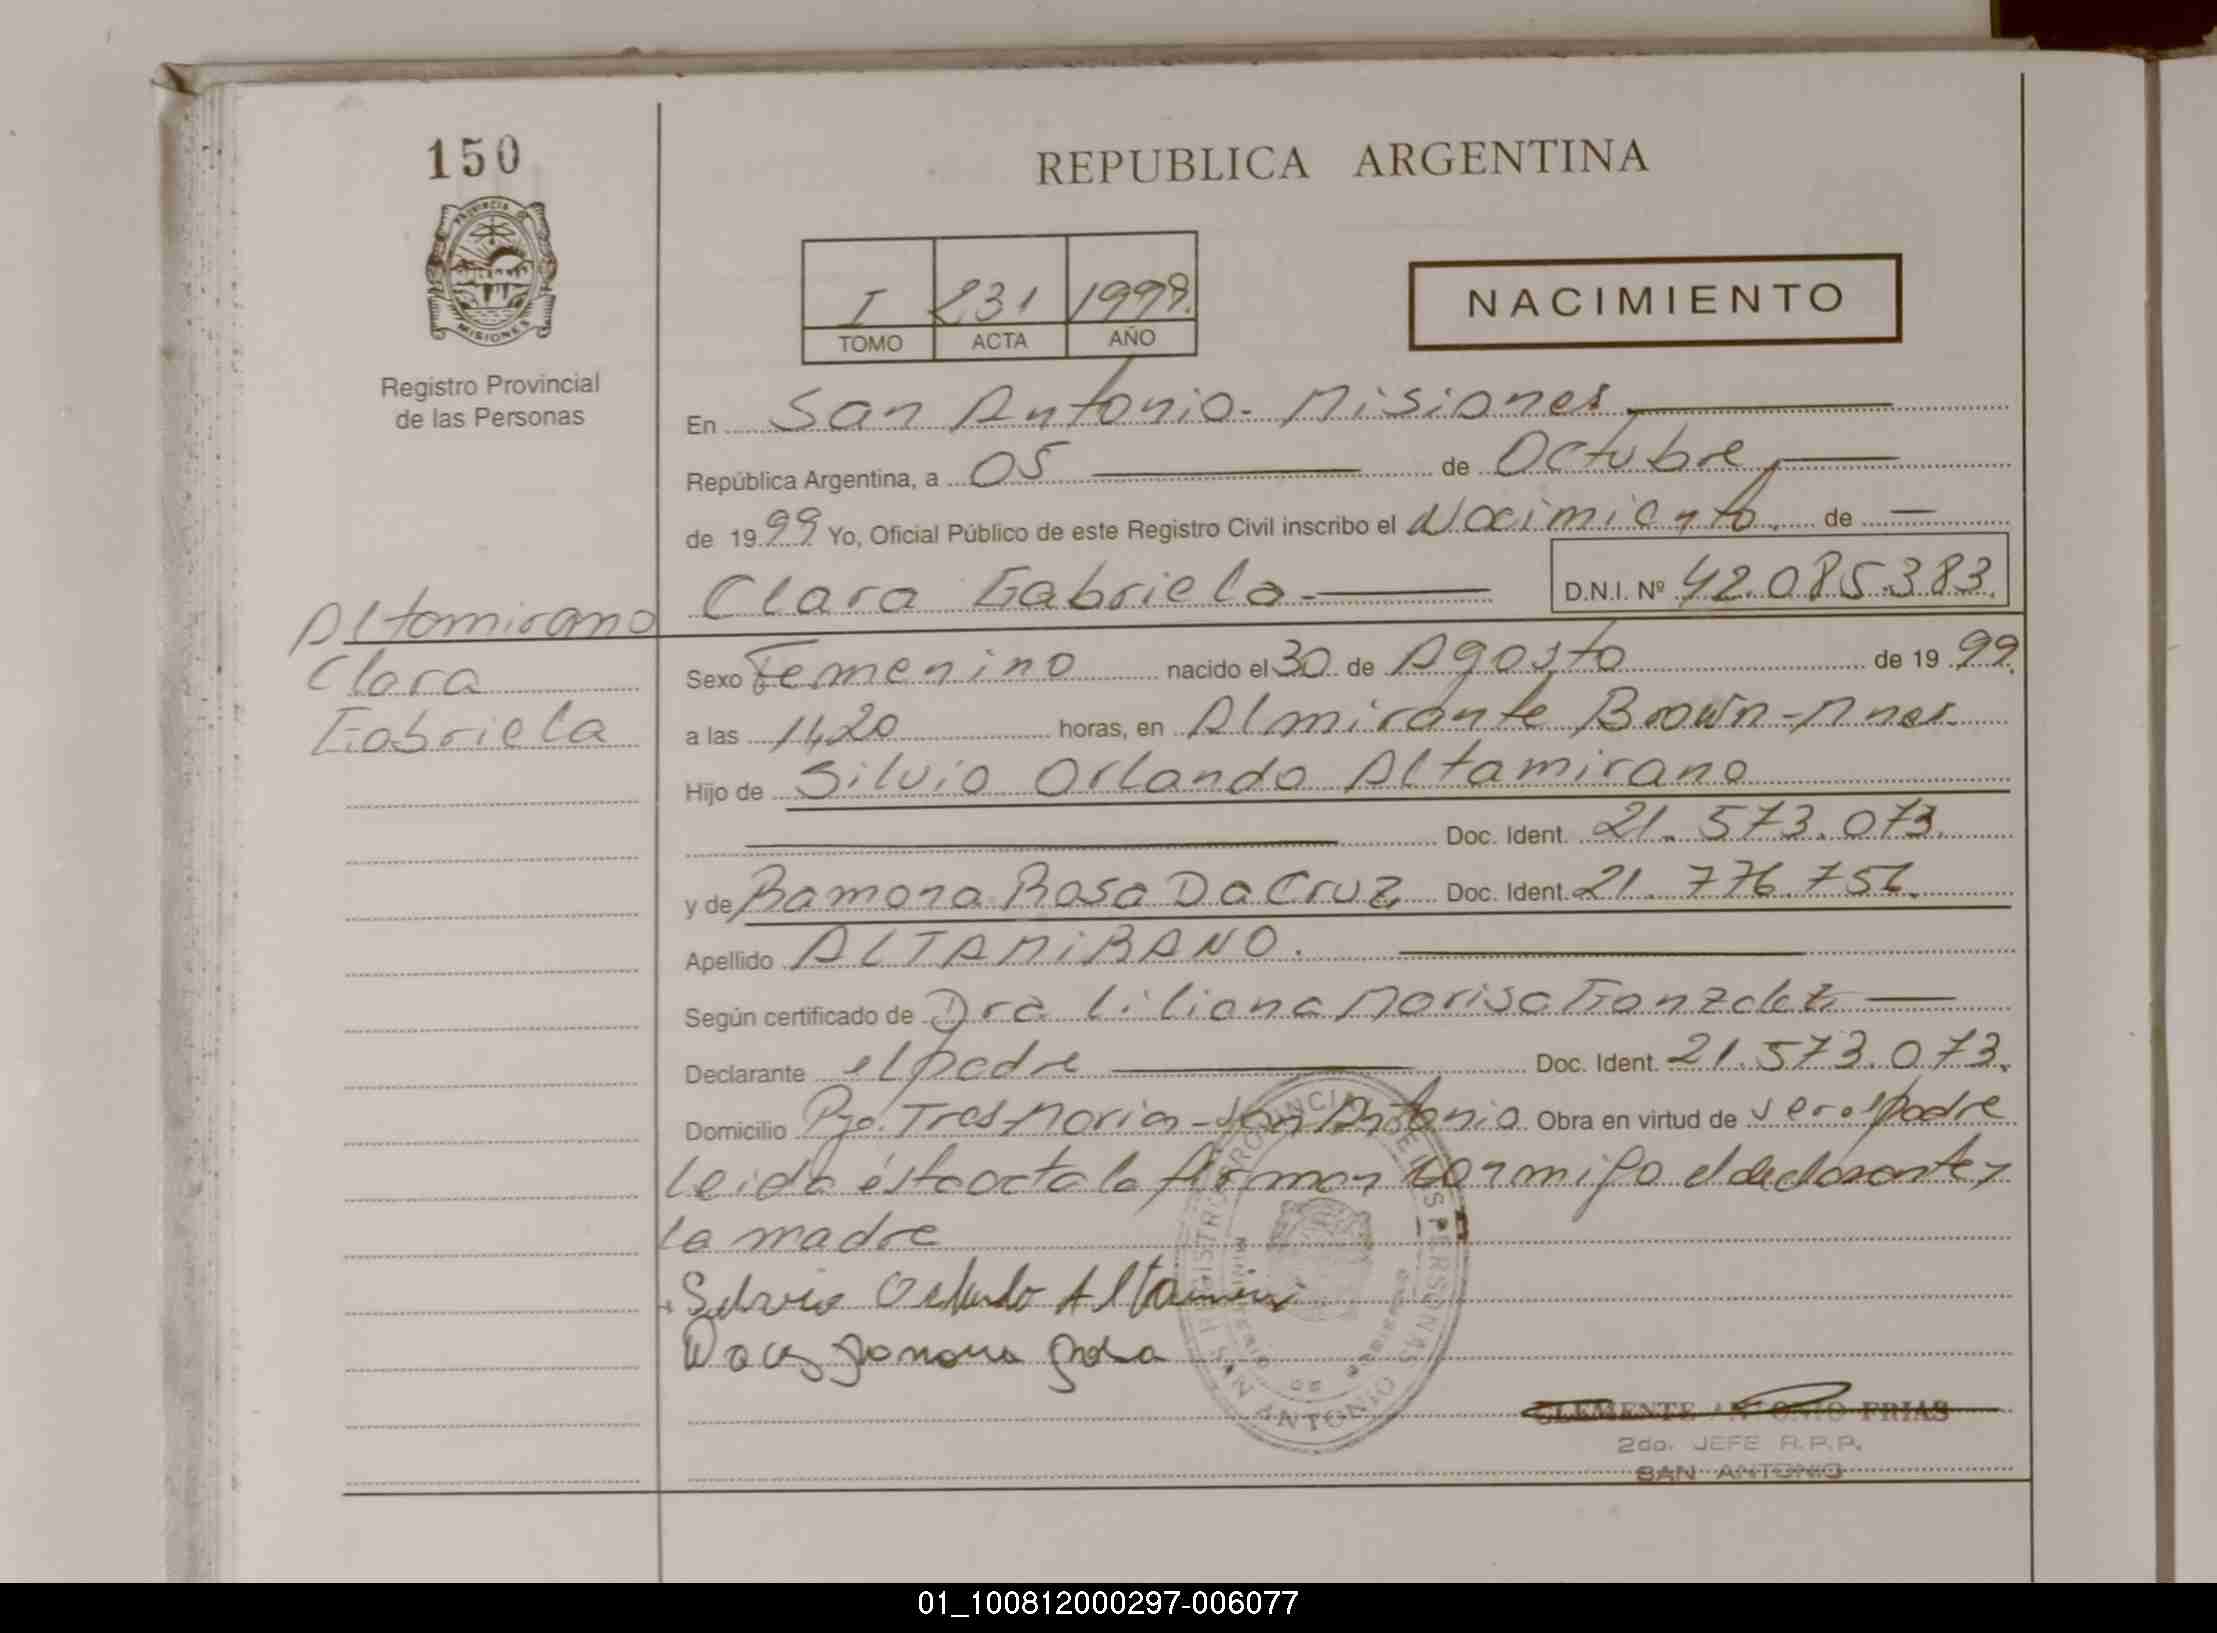 150
REPUBLICA ARGENTINA
PROVINCIA DE
MISIONES
I 231 1999.
TOMO ACTA AÑO
NACIMIENTO
Registro Provincial
de las Personas
En San Antonio - Misiones
República Argentina, a 05 de Octubre
de 1999 Yo, Oficial Público de este Registro Civil inscribo el Nacimiento de —
Clara Gabriela - D.N.I. Nº 42.085.383.
Altamirano
Clara
Gabriela
Sexo Femenino nacido el 30 de Agosto de 1999.
a las 14,20 horas, en Almirante Brown - Mnes.
Hijo de Silvio Orlando Altamirano
Doc. Ident. 21.573.073.
y de Ramona Rosa Da Cruz Doc. Ident. 21.776.756.
Apellido ALTAMIRANO.
Según certificado de Dra Liliana Marisa Gonzalez
Declarante el padre Doc. Ident. 21.573.073.
Domicilio Pje. Tres Marias - San Antonio Obra en virtud de ser el padre
Leida ésta acta la firman conmigo el declarante y
la madre
Silvio Orlando Altamirano
Dacruz Ramona Rosa
REGISTRO PROVINCIAL DE LAS PERSONAS
MINISTERIO DE GOBIERNO
SAN ANTONIO
CLEMENTE ANTONIO FRIAS
2do. JEFE R.P.P.
SAN ANTONIO
01_100812000297-006077